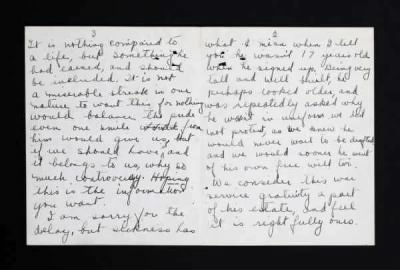 3
It is nothing compared to
a life, but something he
had earned, and should
be included. It is not
a miserable streak in our
nature to want this for nothing
would balance the pride
even one smile would from
him would give us, but
if we should have, and
it belongs to us, why so
much controversy. Hoping
this is the information
you want.
I am sorry for the
delay, but sickness has
2
what I mean when I tell
you he wasn't 17 years old
when he signed up. Being very
tall and well built, he
perhaps looked older, and
was repeatedly asked why
he wasn't in uniform we did
not protest, as we knew he
would never wait to be drafted
and we would sooner he went
of his own free will too.
We consider this war
service gratuity a part
of his estate, and feel
it is rightfully ours.